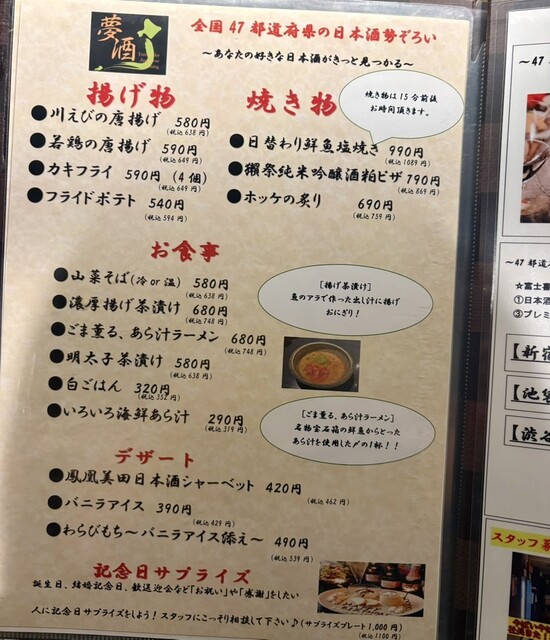 夢酒
全国47都道府県の日本酒勢ぞろい
～あなたの好きな日本酒がきっと見つかる～
揚げ物
●川えびの唐揚げ 580円
(税込638円)
●若鶏の唐揚げ 590円
(税込649円)
●カキフライ 590円 (4個)
(税込649円)
●フライドポテト 540円
(税込594円)
焼き物
焼き物は15分前後
お時間頂きます。
●日替わり鮮魚塩焼き 990円
(税込1089円)
●獺祭純米吟醸酒粕ピザ 790円
(税込869円)
●ホッケの炙り 690円
(税込759円)
お食事
●山菜そば(冷or温) 580円
(税込638円)
●濃厚揚げ茶漬け 680円
(税込748円)
●ごま薫る、あら汁ラーメン 680円
(税込748円)
●明太子茶漬け 580円
(税込638円)
●白ごはん 320円
(税込352円)
●いろいろ海鮮あら汁 290円
(税込319円)
[揚げ茶漬け]
魚のアラで作った出し汁に揚げ
おにぎり！
[ごま薫る、あら汁ラーメン]
名物宝石箱の鮮魚からとった
あら汁を使用した〆の1杯！！
デザート
●鳳凰美田日本酒シャーベット 420円
(税込462円)
●バニラアイス 390円
(税込429円)
●わらびもち～バニラアイス添え～ 490円
(税込539円)
記念日サプライズ
誕生日、結婚記念日、歓送迎会など「お祝い」や「感謝」をしたい
人に記念日サプライズをしよう！スタッフにこっそり相談して下さい♪(サプライズプレート1,000円)
(税込1100円)
～47
～47都道
☆富士喜
①日本酒
③プレミ
【新宿
【池袋
【渋谷
スタッフ募